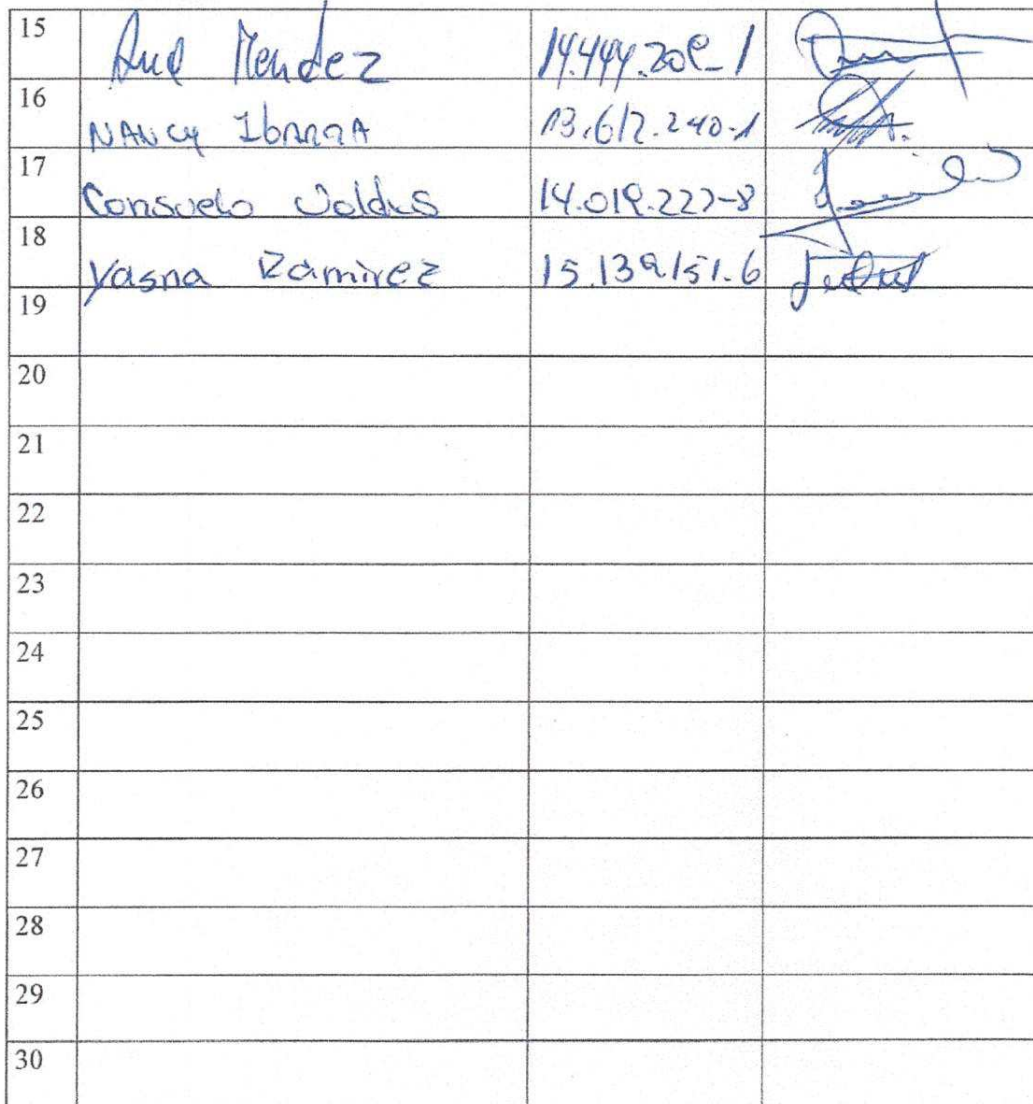 15 Ana Mendez 14.444.209-1
16 NANCY IbARRA 13.612.240-1
17 Consuelo 14.019.227-8
18 Yasna Ramirez 15.139.151.6
19
20
21
22
23
24
25
26
27
28
29
30